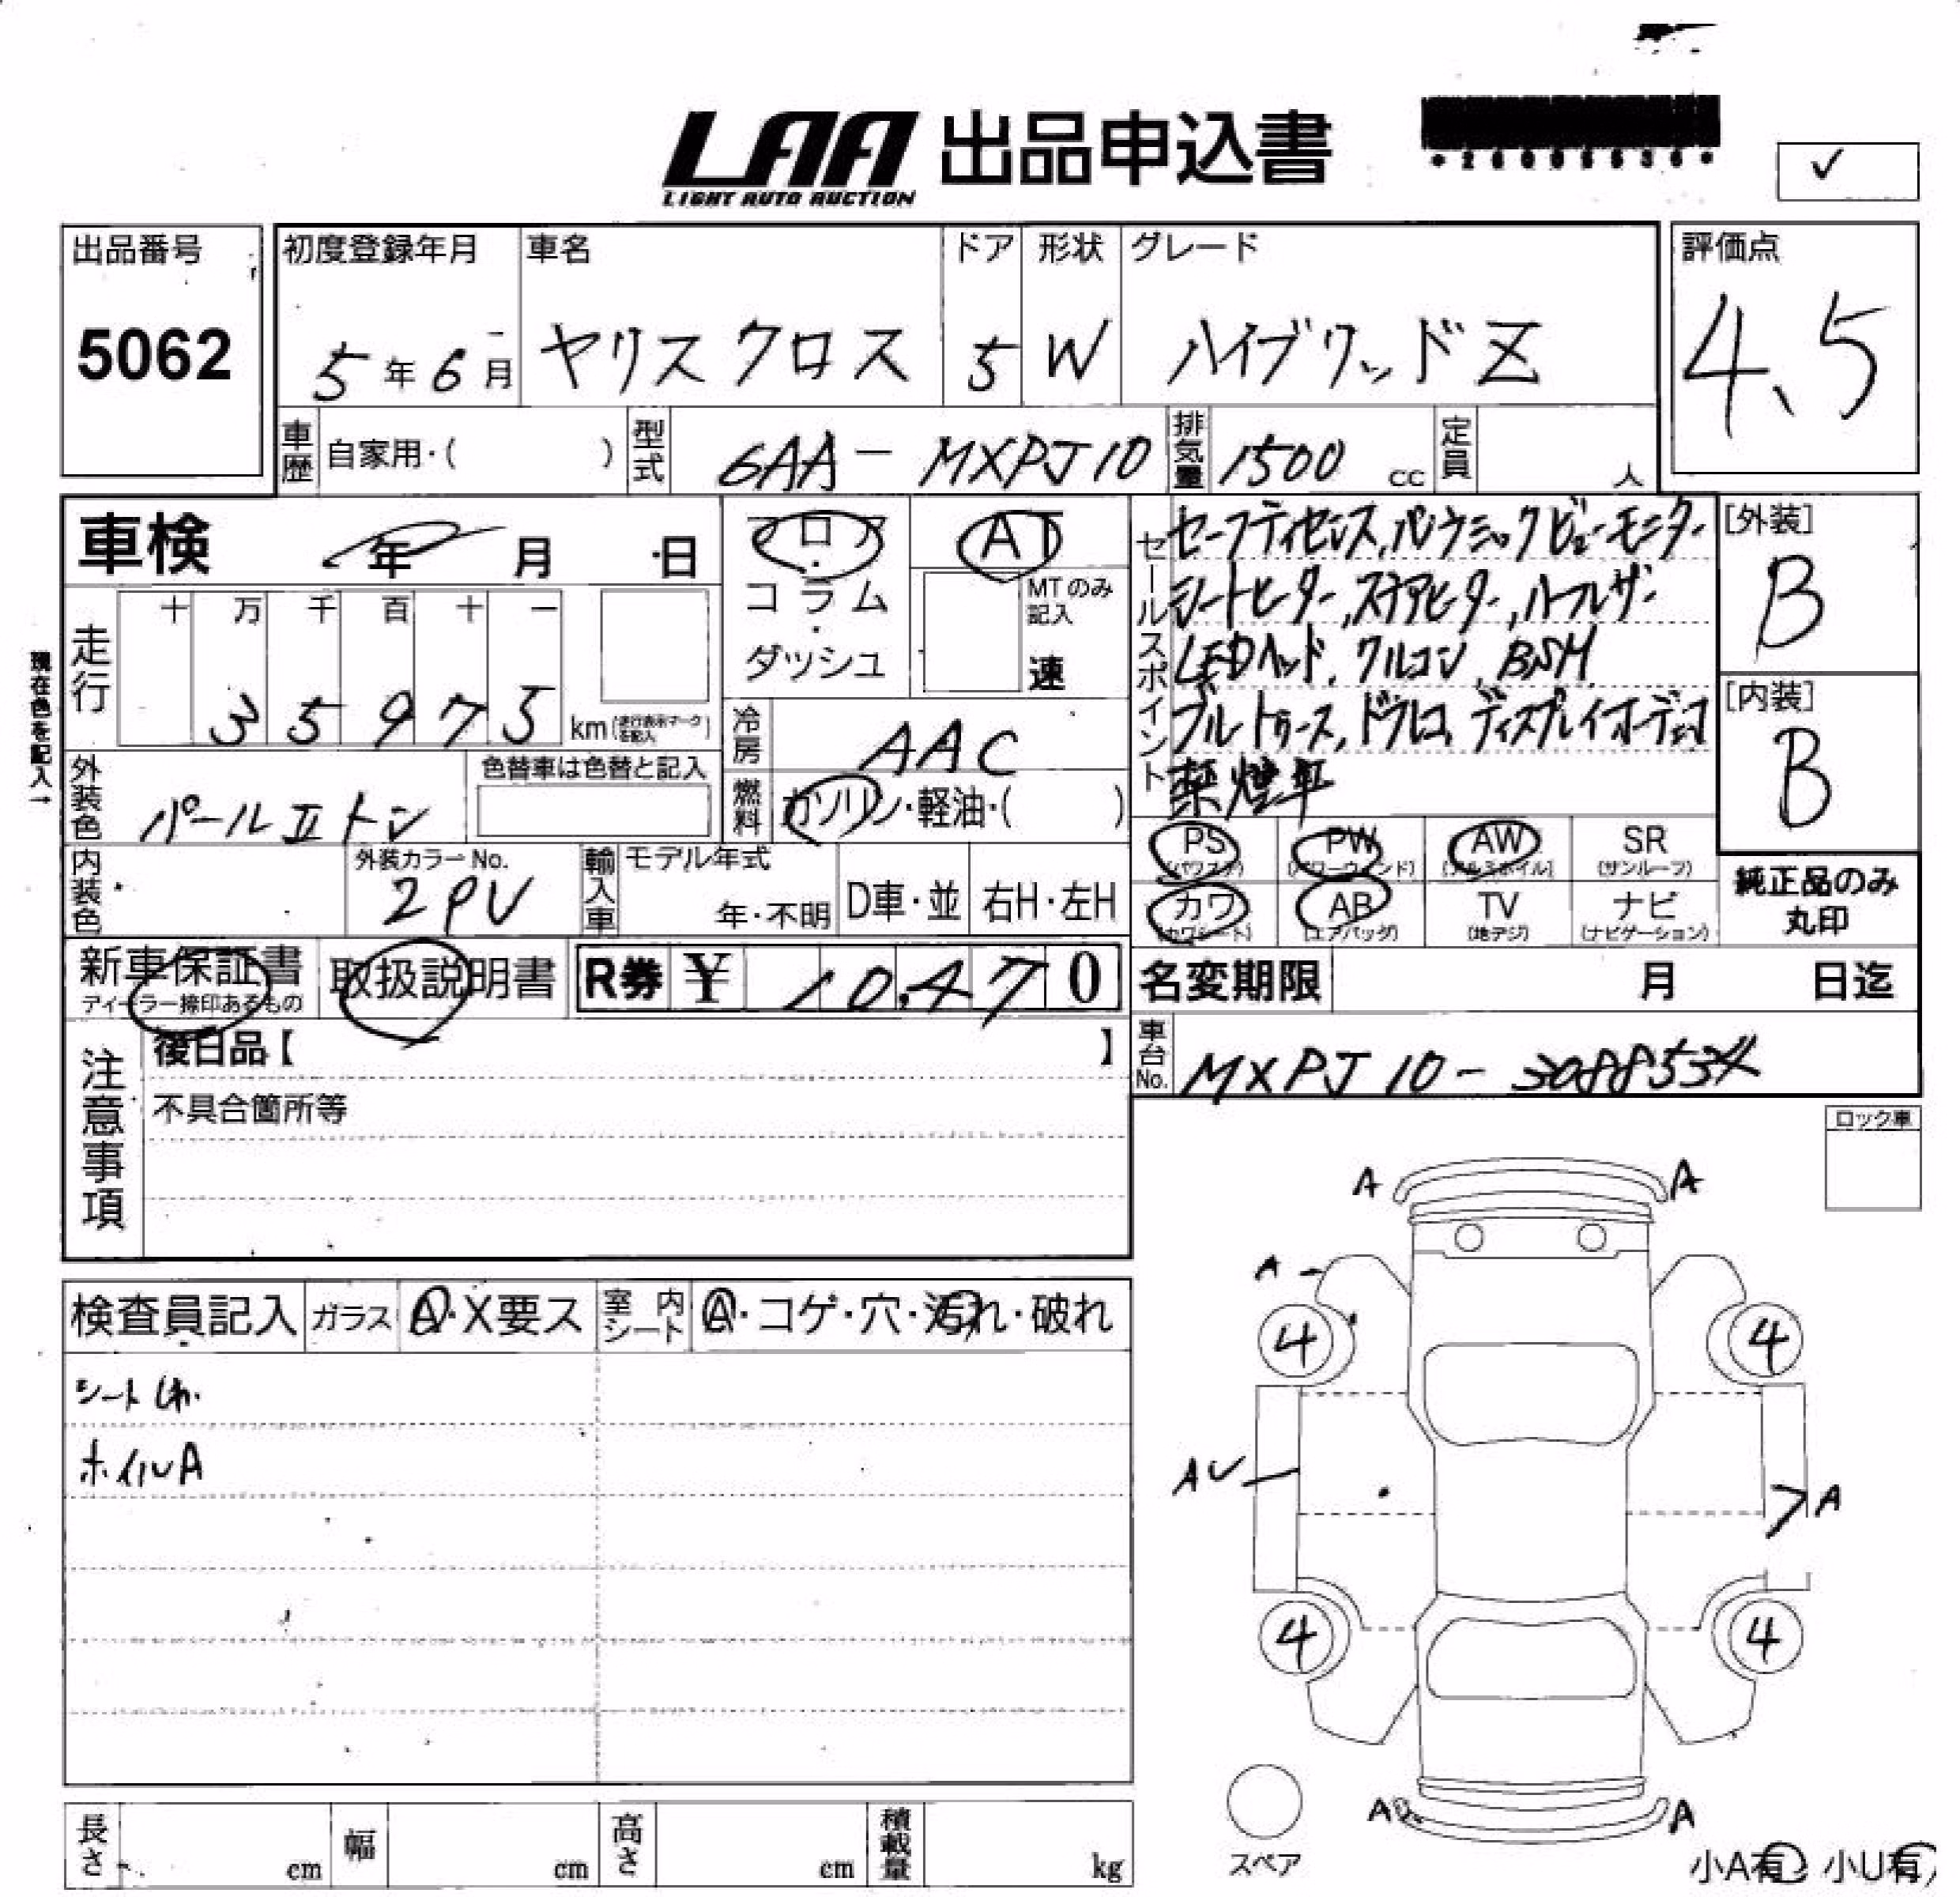 LAA 出品申込書
LIGHT AUTO AUCTION
✓
出品番号
5062
初度登録年月
5年6月
車名
ヤリスクロス
ドア
5
形状
W
グレード
ハイブリッドZ
評価点
4.5
車歴 自家用・( )
型式 6AA-MXPJ10
排気量 1500 cc
定員 人
車検 年 月 日
フロア・コラム・ダッシュ
AT
MTのみ記入
速
セールスポイント
セーフティセンス,パノラミックビューモニター
シートヒーター,ステアヒーター,ハーフレザー
LEDヘッド,クルコン,BSM
ブルートゥース,ドラレコ,ディスプレイオーディオ
禁煙車
[外装]
B
[内装]
B
現在色を記入→
走行
十 万 千 百 十 一
3 5 9 7 5 km(走行表示マークを記入)
冷房 AAC
燃料 ガソリン・軽油・( )
外装色 パールIIトン
色替車は色替と記入
内装色
外装カラーNo.
2PU
輸入車 モデル年式
年・不明
D車・並
右H・左H
PS (パワステ)
PW (パワーウィンド)
AW (アルミホイル)
SR (サンルーフ)
カワ (カワシート)
AB (エアバッグ)
TV (地デジ)
ナビ (ナビゲーション)
純正品のみ
丸印
新車保証書
ディーラー捺印あるもの
取扱説明書
R券 ¥ 10,470
名変期限 月 日迄
車台No. MXPJ10-
注意事項
後日品【 】
不具合箇所等
ロック車
検査員記入 ガラス A・X要ス 室内シート A・コゲ・穴・汚れ・破れ
ホイルA
A A
A
4 4
A
4 4
A A
スペア
小A有 小U有
長さ cm 幅 cm 高さ cm 積載量 kg